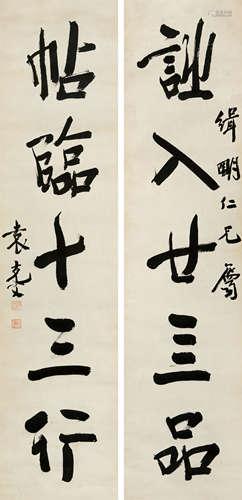 詩入廿三品
緝明仁兄屬
帖臨十三行
袁克文